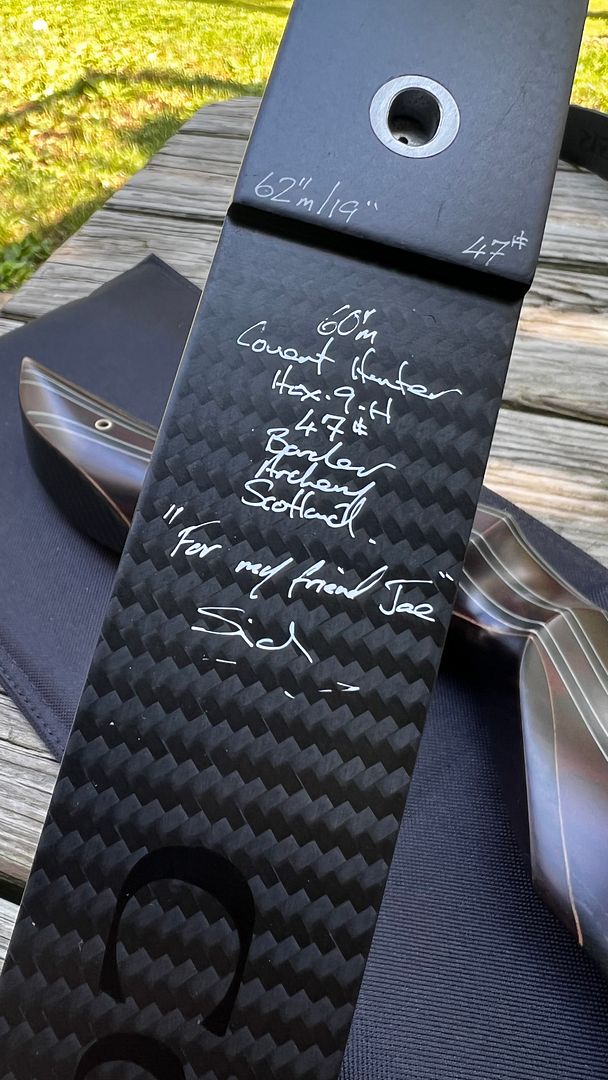 62"m/19"
47#
60"m
Covert Hunter
Hex·9·H
47#
Border
Archery
Scotland.
"For my friend Joe"
Sid